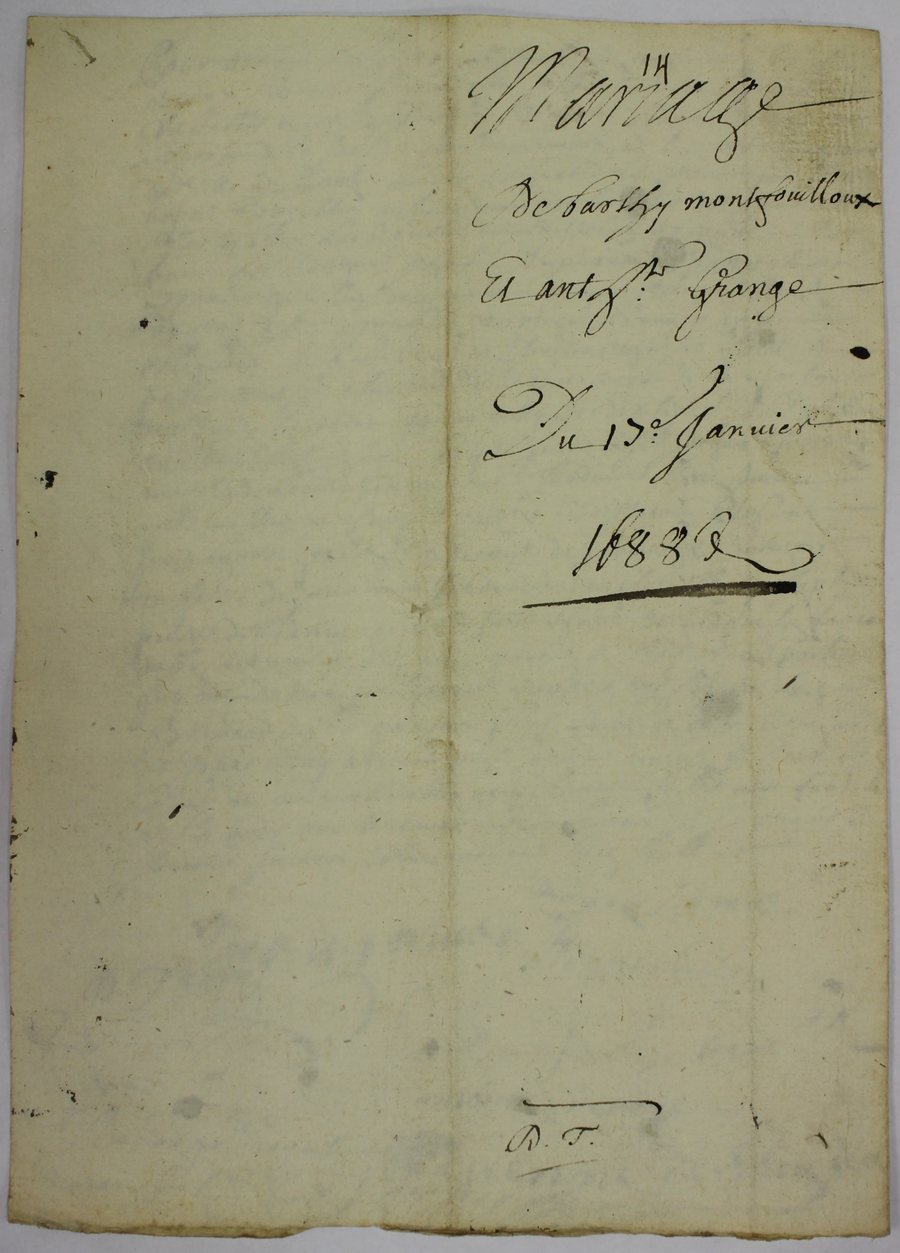 14
Mariage
De barthy montfouilloux
Et ant^te Grange
Du 17e Janvier
1688
B. T.